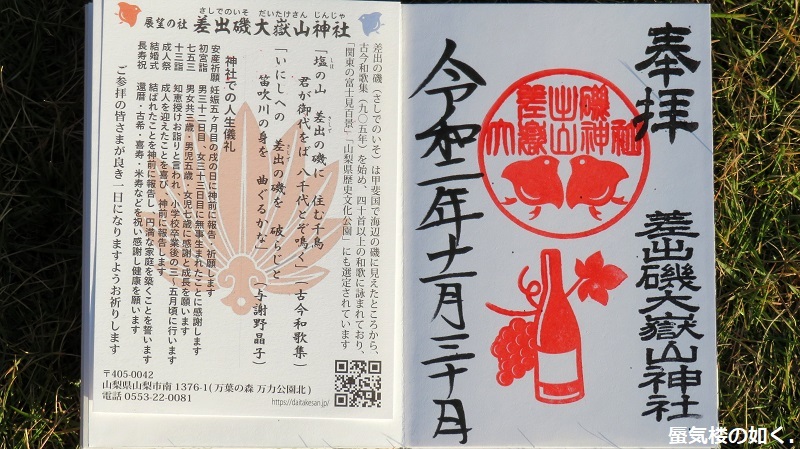 さしでのいそ だいたけさん じんじゃ
展望の社 差出磯大嶽山神社
差出の磯(さしでのいそ)は甲斐国で海辺の磯に見えたところから、
古今和歌集(九〇五年)を始め、四十首以上の和歌に詠まれており、
「関東の富士見百景」、「山梨県歴史文化公園」にも選定されています
「塩の山 差出の磯に 住む千鳥
君が御代をば 八千代とぞ鳴く」(古今和歌集)
「いにしへの 差出の磯を 破らじと
笛吹川の身を 曲ぐるかな」(与謝野晶子)
神社での人生儀礼
安産祈願 妊娠五ヶ月目の戌の日に神前に報告・祈願します
初宮詣 男三十二日目、女三十三日目に無事生まれたことに感謝します
七五三 男女共三歳・男児五歳・女児七歳に感謝と成長を願います
十三詣 知恵授けお詣りと言われ、小学校卒業後の三〜五月頃に行います
成人祭 成人を迎えたことを喜び、神前に報告します
結婚式 結ばれたことを神前に報告し、円満な家庭を築くことを誓います
長寿祝 還暦・古希・喜寿・米寿などを祝い感謝し健康を願います
ご参拝の皆さまが良き一日になりますようお祈りします
〒405-0042
山梨県山梨市南 1376-1(万葉の森 万力公園北)
電話 0553-22-0081
https://daitakesan.jp/
奉拝
差出磯大嶽山神社
差出磯
大嶽山神社
令和二年十一月三十日
蜃気楼の如く.